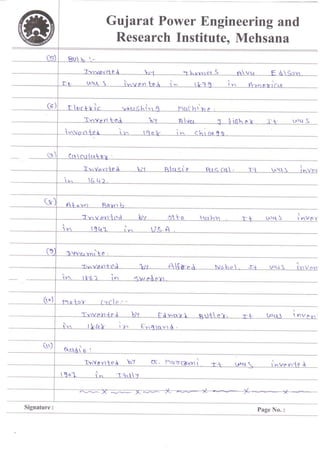 Gujarat Power Engineering and
Research Institute, Mehsana
(5) Bulb :-
Invented by Thomas Alva Edison.
It was invented in 1879 in America
(6) Electric washing Machine :
Invented by Alva J fisher It was
invented in 1908 in Chicago.
Calculator
Invented by Blasie Pascal. It was inven
in 1642.
(8) Atom Bomb
Invented by Otto Hahn. It was inven
in 1941 in USA.
(9)
Invented by Alfered Nobel. It was inven
in 1862 in Sweden.
(10) Motor Cycle :-
Invented by Edward Butler. It was inven
in in England.
(11) Radio :
Invented by G. It was invented
in Italy
Signature :
Page No. :